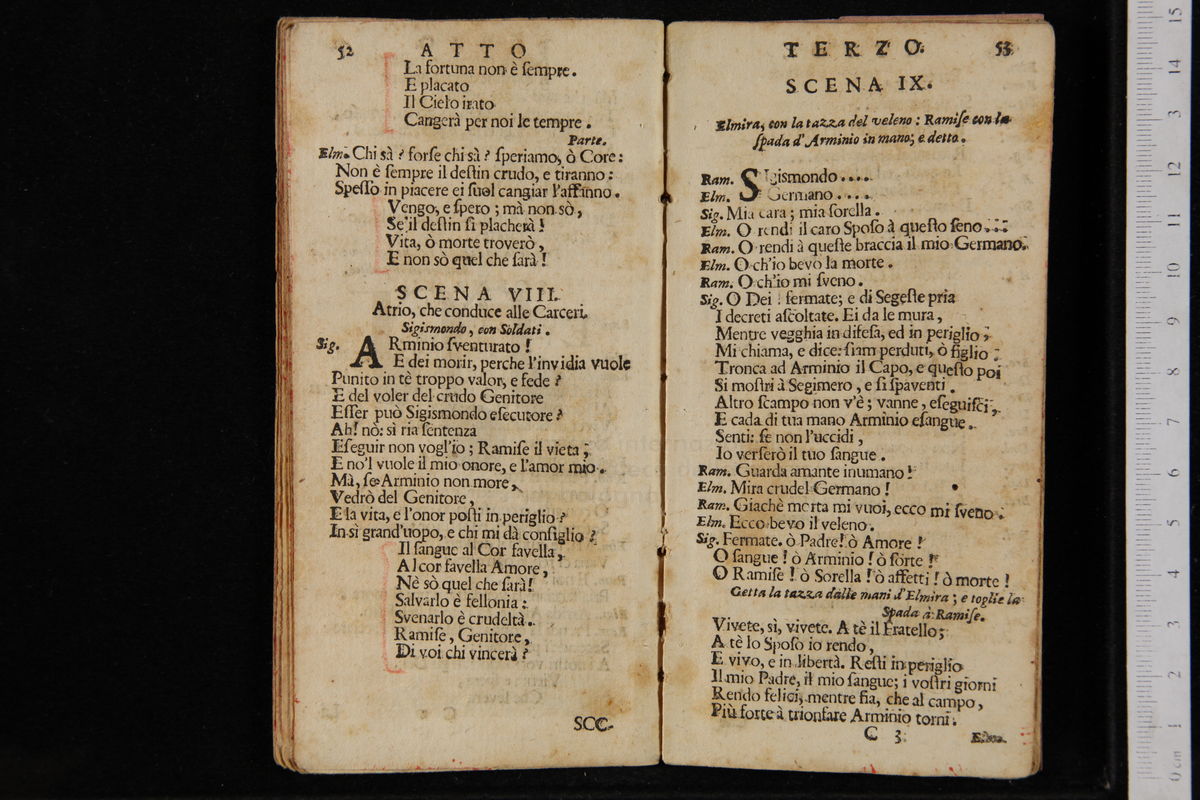 52 ATTO
La fortuna non è ſempre.
E placato
Il Cielo irato
Cangerà per noi le tempre.
Parte.
Elm. Chi sà? forſe chi sà? ſperiamo, ò Core:
Non è ſempre il deſtin crudo, e tiranno:
Speſſo in piacere ei ſuol cangiar l'affanno.
Vengo, e ſpero; mà non sò,
Se il deſtin ſi placherà!
Vita, ò morte troverò,
E non sò quel che ſarà!
SCENA VIII.
Atrio, che conduce alle Carceri.
Sigismondo, con Soldati.
Sig. ARminio ſventurato!
E dei morir, perche l'invidia vuole
Punito in tè troppo valor, e fede?
E del voler del crudo Genitore
Eſſer può Sigismondo eſecutore?
Ah! nò: sì ria ſentenza
Eſeguir non vogl'io; Ramiſe il vieta;
E no'l vuole il mio onore, e l'amor mio.
Mà, ſe Arminio non more,
Vedrò del Genitore,
E la vita, e l'onor poſti in periglio?
In sì grand'uopo, e chi mi dà conſiglio?
Il ſangue al Cor favella,
Al cor favella Amore,
Nè sò quel che ſarà!
Salvarlo è fellonia:
Svenarlo è crudeltà.
Ramiſe, Genitore,
Di voi chi vincerà?
SCE-
TERZO. 53
SCENA IX.
Elmira, con la tazza del veleno: Ramiſe con la
ſpada d'Arminio in mano; e detto.
Ram. SIgismondo....
Elm. Germano....
Sig. Mia cara; mia ſorella.
Elm. O rendi il caro Spoſo à queſto ſeno...
Ram. O rendi à queſte braccia il mio Germano.
Elm. O ch'io bevo la morte.
Ram. O ch'io mi ſveno.
Sig. O Dei! fermate; e di Segeſte pria
I decreti aſcoltate. Ei da le mura,
Mentre vegghia in difeſa, ed in periglio;
Mi chiama, e dice: ſiam perduti, ò figlio:
Tronca ad Arminio il Capo, e queſto poi
Si moſtri à Segimero, e ſi ſpaventi.
Altro ſcampo non v'è; vanne, eſeguiſci,
E cada di tua mano Arminio eſangue.
Senti: ſe non l'uccidi,
Io verſerò il tuo ſangue.
Ram. Guarda amante inumano!
Elm. Mira crudel Germano!
Ram. Giachè morta mi vuoi, ecco mi ſveno.
Elm. Ecco bevo il veleno.
Sig. Fermate. ò Padre! ò Amore!
O ſangue! ò Arminio! ò ſorte!
O Ramiſe! ò Sorella! ò affetti! ò morte!
Getta la tazza dalle mani d'Elmira; e toglie la
Spada à Ramiſe.
Vivete, sì, vivete. A tè il Fratello;
A tè lo Spoſo io rendo,
E vivo, e in libertà. Reſti in periglio
Il mio Padre, il mio ſangue; i voſtri giorni
Rendo felici, mentre fia, che al campo,
Più forte à trionfare Arminio torni.
C 3 Elm.
0 cm 1 2 3 4 5 6 7 8 9 10 11 12 13 14 15